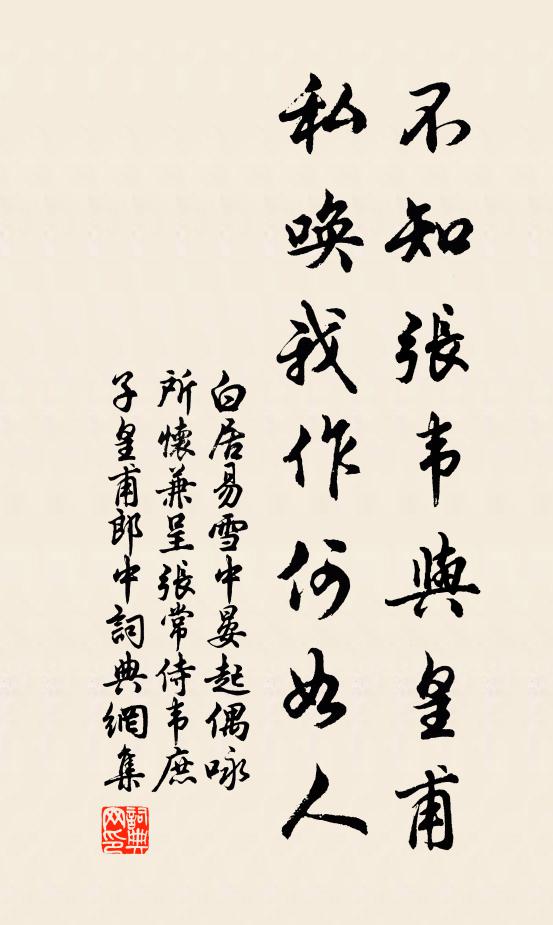 不知張韦與皇甫
私喚我作何如人
白居易雪中晏起偶咏
所懷兼呈張常侍韦庶
子皇甫郎中詞典網集
詞典网印